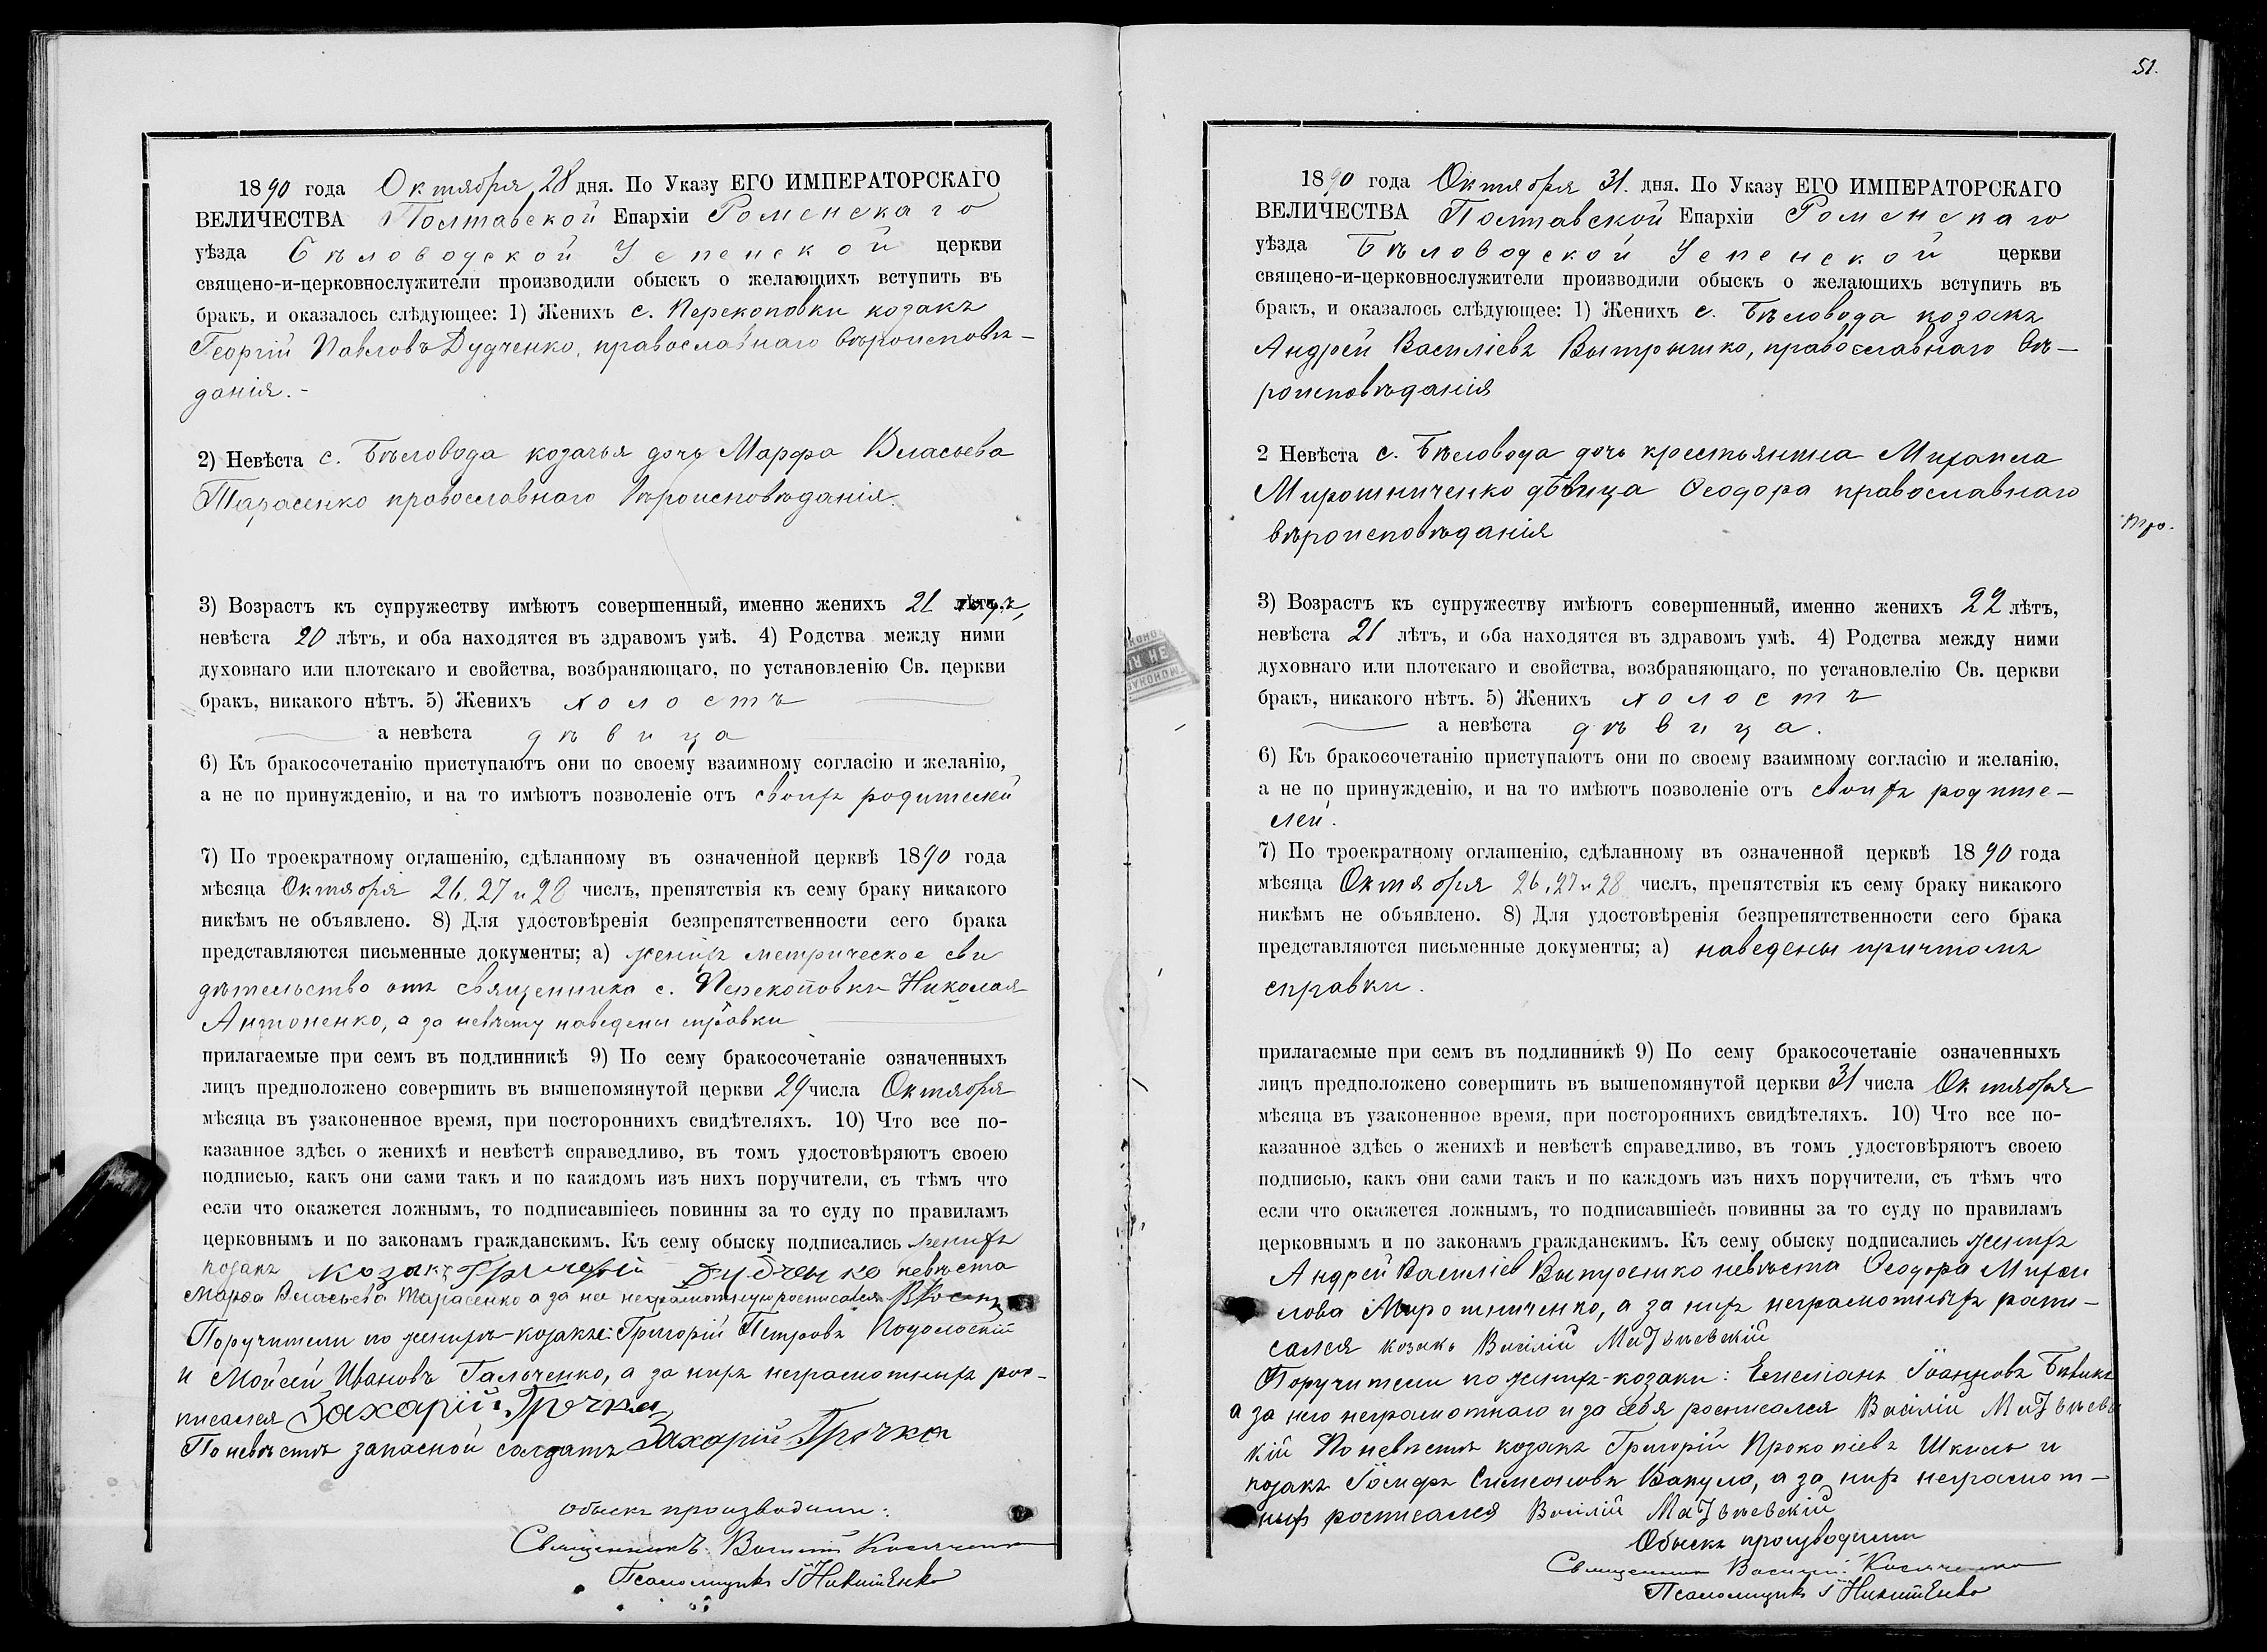 1890 года Октября 28 дня. По Указу ЕГО ИМПЕРАТОРСКАГО
ВЕЛИЧЕСТВА Полтавской Епархіи Роменскаго
уѣзда Бѣловодской Успенской церкви
священо-и-церковнослужители производили обыскъ о желающихъ вступить въ
бракъ, и оказалось слѣдующее: 1) Женихъ с. Перекоповки козакъ
Георгій Павловъ Дудченко, православнаго вѣроисповѣ-
данія.-
2) Невѣста с. Бѣловода козачья дочь Марфа Власьева
Тарасенко православнаго вѣроисповѣданія.
3) Возрастъ къ супружеству имѣютъ совершенный, именно женихъ 21
невѣста 20 лѣтъ, и оба находятся въ здравомъ умѣ. 4) Родства между ними
духовнаго или плотскаго и свойства, возбраняющаго, по установленію Св. церкви
бракъ, никакого нѣтъ. 5) Женихъ холостъ
а невѣста дѣвица
6) Къ бракосочетанію приступаютъ они по своему взаимному согласію и желанію,
а не по принужденію, и на то имѣютъ позволеніе отъ своихъ родителей
7) По троекратному оглашенію, сдѣланному въ означенной церквѣ 1890 года
мѣсяца Октября 26, 27 и 28 числъ, препятствія къ сему браку никакого
никѣмъ не объявлено. 8) Для удостовѣренія безпрепятственности сего брака
представляются письменные документы; а) женихъ метрическое сви
дѣтельство отъ священника с. Перекоповки Николая
Антоненко, а за невѣсту наведены справки
прилагаемые при семъ въ подлинникѣ 9) По сему бракосочетаніе означенныхъ
лицъ предположено совершить въ вышепомянутой церкви 29 числа Октября
мѣсяца въ узаконенное время, при постороннихъ свидѣтеляхъ. 10) Что все по-
казанное здѣсь о женихѣ и невѣстѣ справедливо, въ томъ удостовѣряютъ своею
подписью, какъ они сами такъ и по каждомъ изъ нихъ поручители, съ тѣмъ что
если что окажется ложнымъ, то подписавшіесь повинны за то суду по правиламъ
церковнымъ и по законамъ гражданскимъ. Къ сему обыску подписались женихъ
козакъ козакъ Дудченко невѣста
Марфа Власьева Тарасенко а за нее неграмотную росписался
Поручители по женихѣ-козаки: Григорій Петровъ
и Мойсей Ивановъ Гальченко, а за нихъ неграмотныхъ рос-
писался Захарій Грочка
По невѣстѣ запасной солдатъ Захарій Грочка
Обыскъ производили:
Священникъ Василій
Псаломщикъ І Никитенко
51.
1890 года Октября 31. дня. По Указу ЕГО ИМПЕРАТОРСКАГО
ВЕЛИЧЕСТВА Полтавской Епархіи Роменскаго
уѣзда Бѣловодской Успенской церкви
священо-и-церковнослужители производили обыскъ о желающихъ вступить въ
бракъ, и оказалось слѣдующее: 1) Женихъ с. Бѣловода козакъ
Андрей Василіевъ православнаго вѣ-
роисповѣданія
2 Невѣста с. Бѣловода дочь крестьянина Михаила
Мирошниченко дѣвица Ѳеодора православнаго
вѣроисповѣданія
3) Возрастъ къ супружеству имѣютъ совершенный, именно женихъ 22 лѣтъ,
невѣста 21 лѣтъ, и оба находятся въ здравомъ умѣ. 4) Родства между ними
духовнаго или плотскаго и свойства, возбраняющаго, по установлелію Св. церкви
бракъ, никакого нѣтъ. 5) Женихъ холостъ
а невѣста дѣвица.
6) Къ бракосочетанію приступаютъ они по своему взаимному согласію и желанію,
а не по принужденію, и на то имѣютъ позволеніе отъ своихъ родите-
лей.
7) По троекратному оглашенію, сдѣланному въ означенной церквѣ 1890 года
мѣсяца Октября 26, 27 и 28 числъ, препятствія къ сему браку никакого
никѣмъ не объявлено. 8) Для удостовѣренія безпрепятственности сего брака
представляются письменные документы; а) наведены причтомъ
справки.
прилагаемые при семъ въ подлинникѣ 9) По сему бракосочетаніе означенныхъ
лицъ предположено совершить въ вышепомянутой церкви 31 числа Октября
мѣсяца въ узаконенное время, при постороннихъ свидѣтеляхъ. 10) Что все по-
казанное здѣсь о женихѣ и невѣстѣ справедливо, въ томъ удостовѣряютъ своею
подписью, какъ они сами такъ и по каждомъ изъ нихъ поручители, съ тѣмъ что
если что окажется ложнымъ, то подписавшіесь повинны за то суду по правиламъ
церковнымъ и по законамъ гражданскимъ. Къ сему обыску подписались женихъ
Андрей Василіев невѣста Ѳеодора Михаи
лова Мирошниченко, а за нихъ неграмотныхъ роспи-
сался козакъ Василій
Поручители по женихѣ-козаки: Емеліанъ Іоанновъ
а за него неграмотнаго и за себя росписался Василій
кій По невѣстѣ козакъ Григорій Прокопіевъ Шкиль и
козакъ Іосифъ Симеоновъ Вакуло, а за нихъ неграмот-
ныхъ росписался Василій
Обыскъ производили
Священникъ Василій
Псаломщикъ І Никитенко